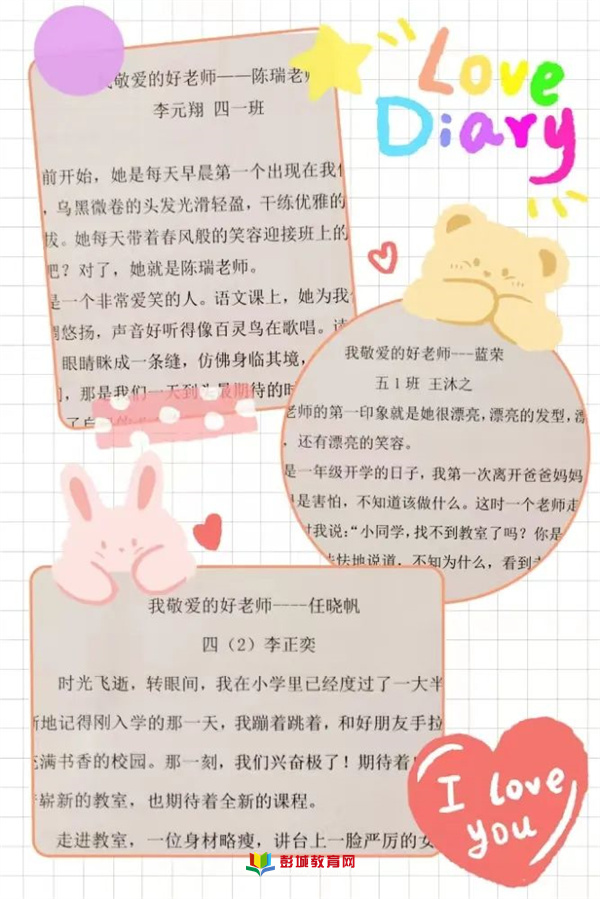 我敬爱的好老师——陈瑞老师
李元翔 四一班
前开始，她是每天早晨第一个出现在我们
，乌黑微卷的头发光滑轻盈，干练优雅的
拔。她每天带着春风般的笑容迎接班上的
吧？对了，她就是陈瑞老师。
是一个非常爱笑的人。语文课上，她为我们
悠扬，声音好听得像百灵鸟在歌唱。读
眼睛眯成一条缝，仿佛身临其境，
，那是我们一天到头最期待的时
Love
Diary
我敬爱的好老师---蓝荣
五1班 王沐之
老师的第一印象就是她很漂亮，漂亮的发型，漂
，还有漂亮的笑容。
是一年级开学的日子，我第一次离开爸爸妈妈
是害怕，不知道该做什么。这时一个老师走
对我说：“小同学，找不到教室了吗？你是
怯怯地说道，不知为什么，看到
我敬爱的好老师----任晓帆
四（2）李正奕
时光飞逝，转眼间，我在小学里已经度过了一大半
地记得刚入学的那一天，我蹦着跳着，和好朋友手拉
充满书香的校园。那一刻，我们兴奋极了！期待着
崭新的教室，也期待着全新的课程。
走进教室，一位身材略瘦，讲台上一脸严厉的女
I love
you
彭城教育网